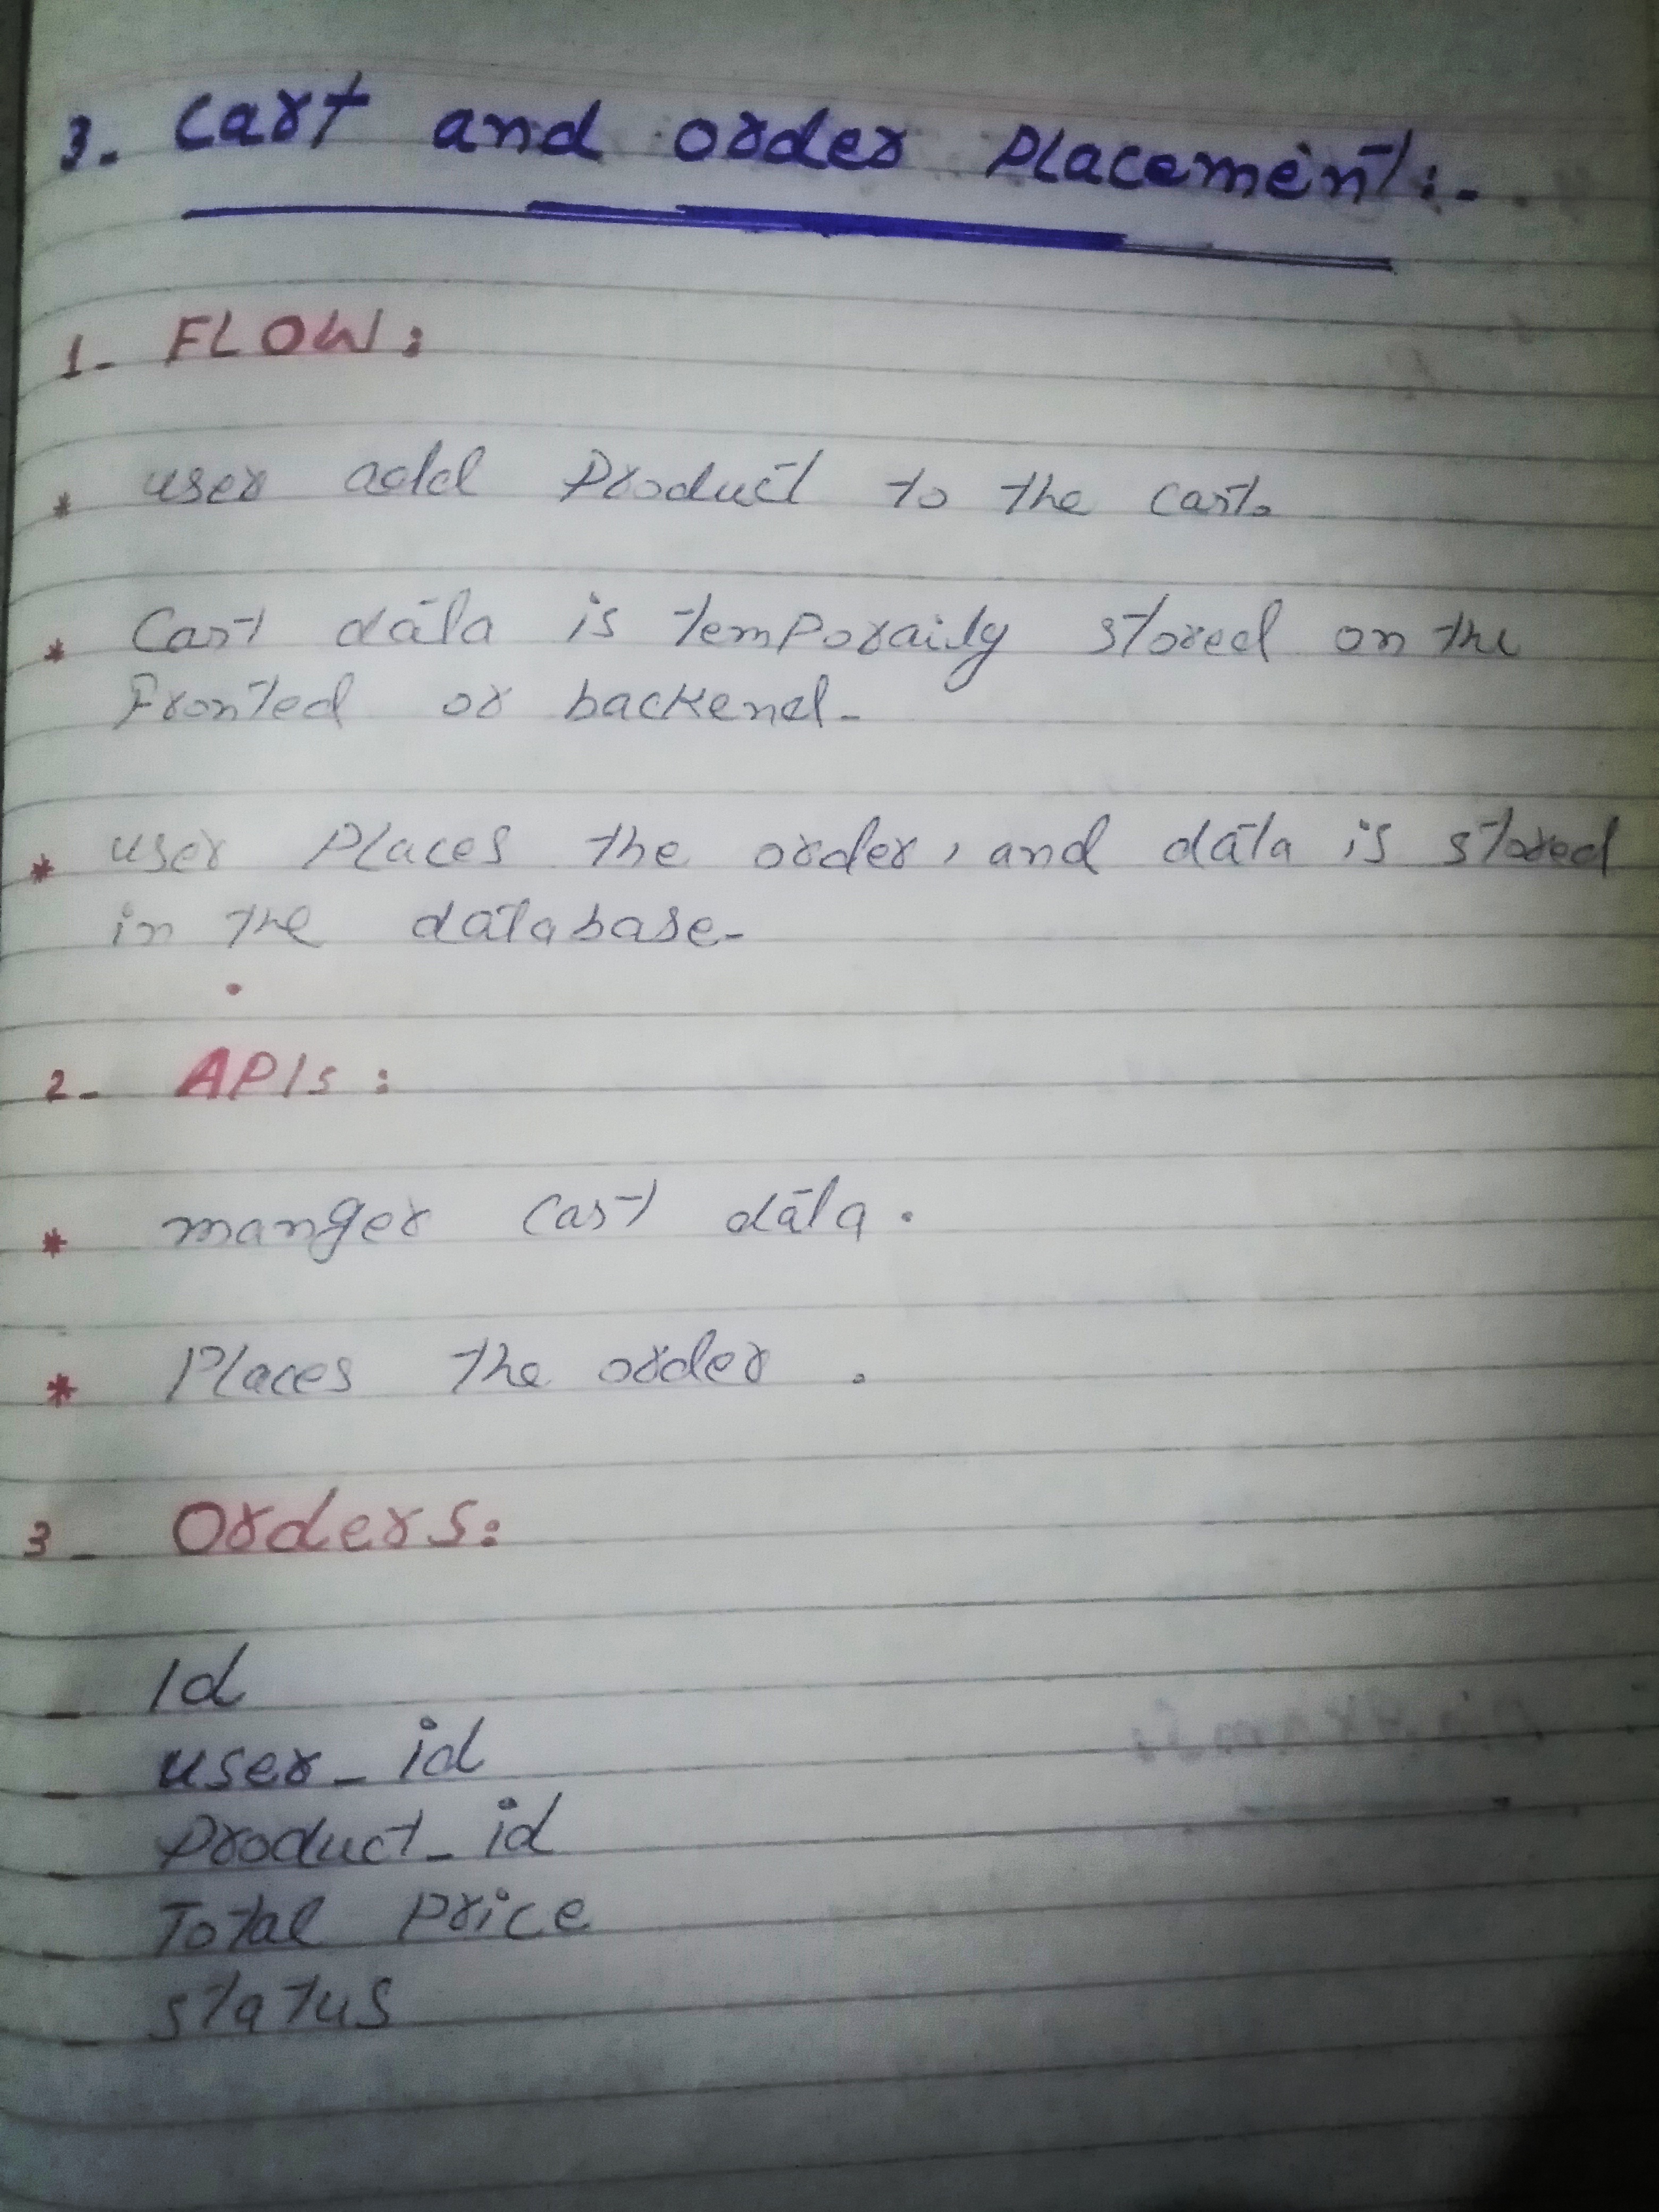 3. Cart and order Placement:-
1- FLOW:
* user add Product to the cart.
* Cart data is temporaily stored on the
Fronted or backend-
* user Places the order, and data is stored
in the database-
2- APIs:
* manger cart data.
* Places the order .
3- Orders:
- Id
- user_id
- Product_id
- Total Price
- status